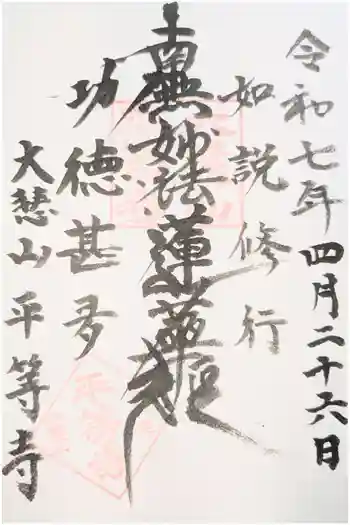 令和七年四月二十六日
如説修行
南無妙法蓮華経
功徳甚多
大慈山平等寺